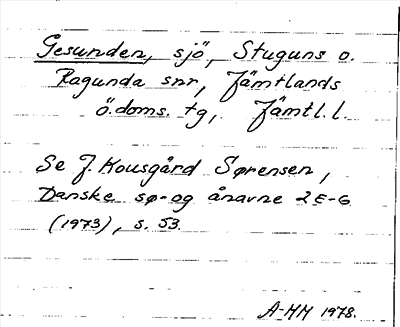 Gesunden, sjö, Stuguns o.
Ragunda snr, Jämtlands
ö.doms. tg, Jämtl.l.
Se J. Kousgård Sørensen,
Danske sø- og ånavne 2 E-G
(1973), s. 53.
A-MH 1978.